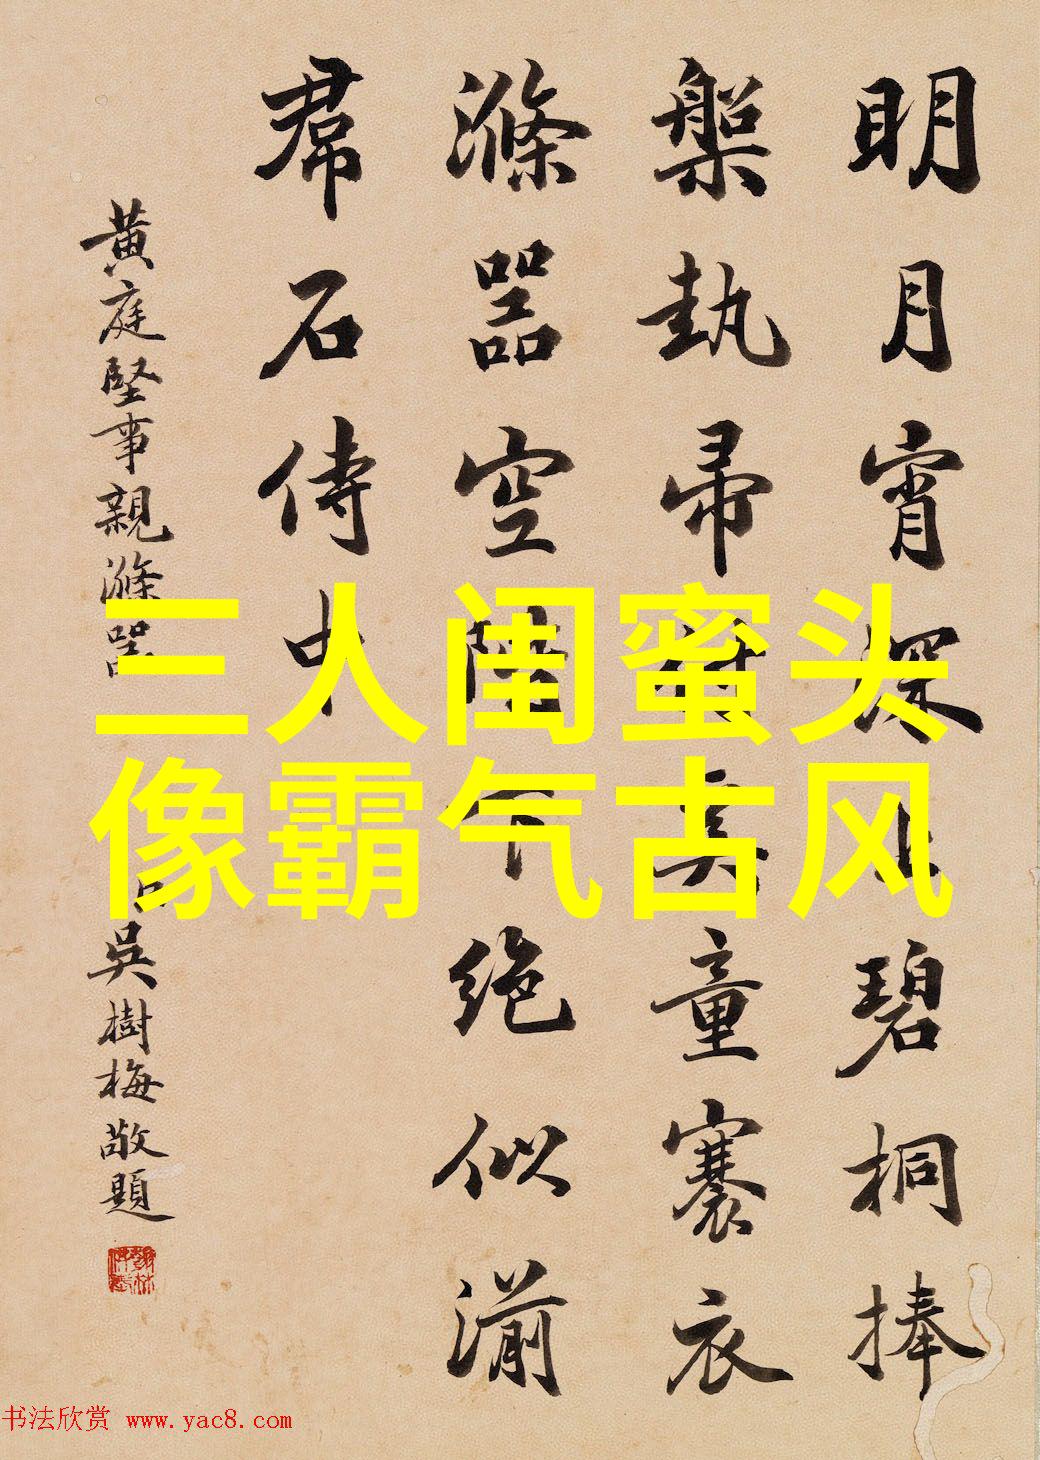 明月宵深碧桐捧
槃執帚童褰衣
滌器空階下絕似湔
帬石侍中
黃庭堅事親滌器
吳樹梅敬題
三人闺蜜头
像霸气古风
书法欣赏 www.yac8.com